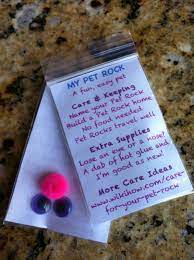 MY PET ROCK
A fun, easy pet
Care & Keeping
Name your Pet Rock
Build a Pet Rock home
No food needed
Pet Rocks travel well
Extra Supplies
Lose an eye or a nose?
A dab of hot glue and
I'm good as new!
More Care Ideas
www.wikihow.com/care-
for-your-pet-rock